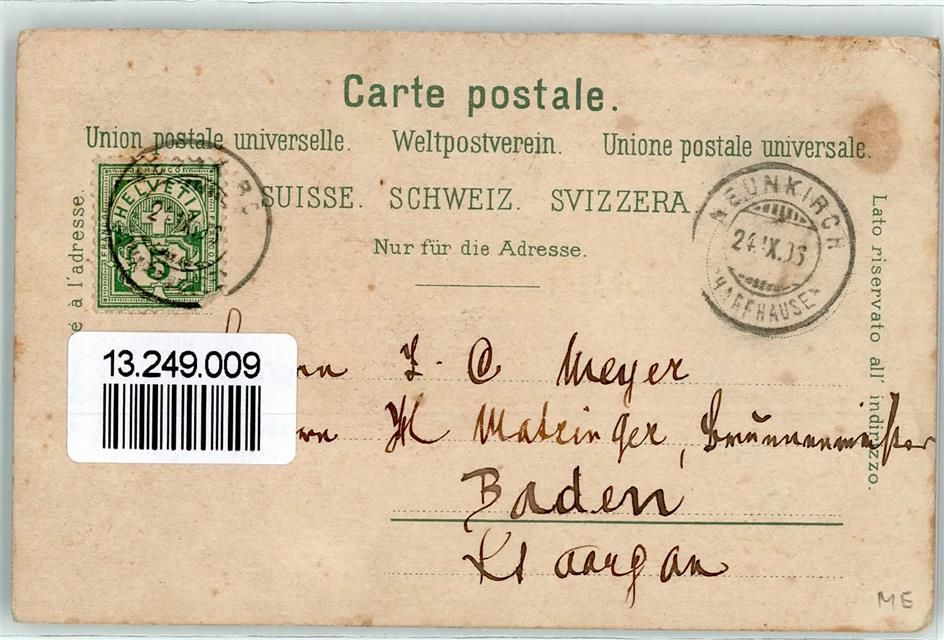 Carte postale.
Union postale universelle. Weltpostverein. Unione postale universale.
SUISSE. SCHWEIZ. SVIZZERA
Nur für die Adresse.
é à l'adresse.
Lato riservato all' indirizzo.
FRANCO
HELVETIA
5
NEUNKIRCH
24.IX.06
HAFFHAUSEN
13.249.009
J. C. Meyer
H Matzinger, Brunnenmeister
Baden
Kt Aargau
ME